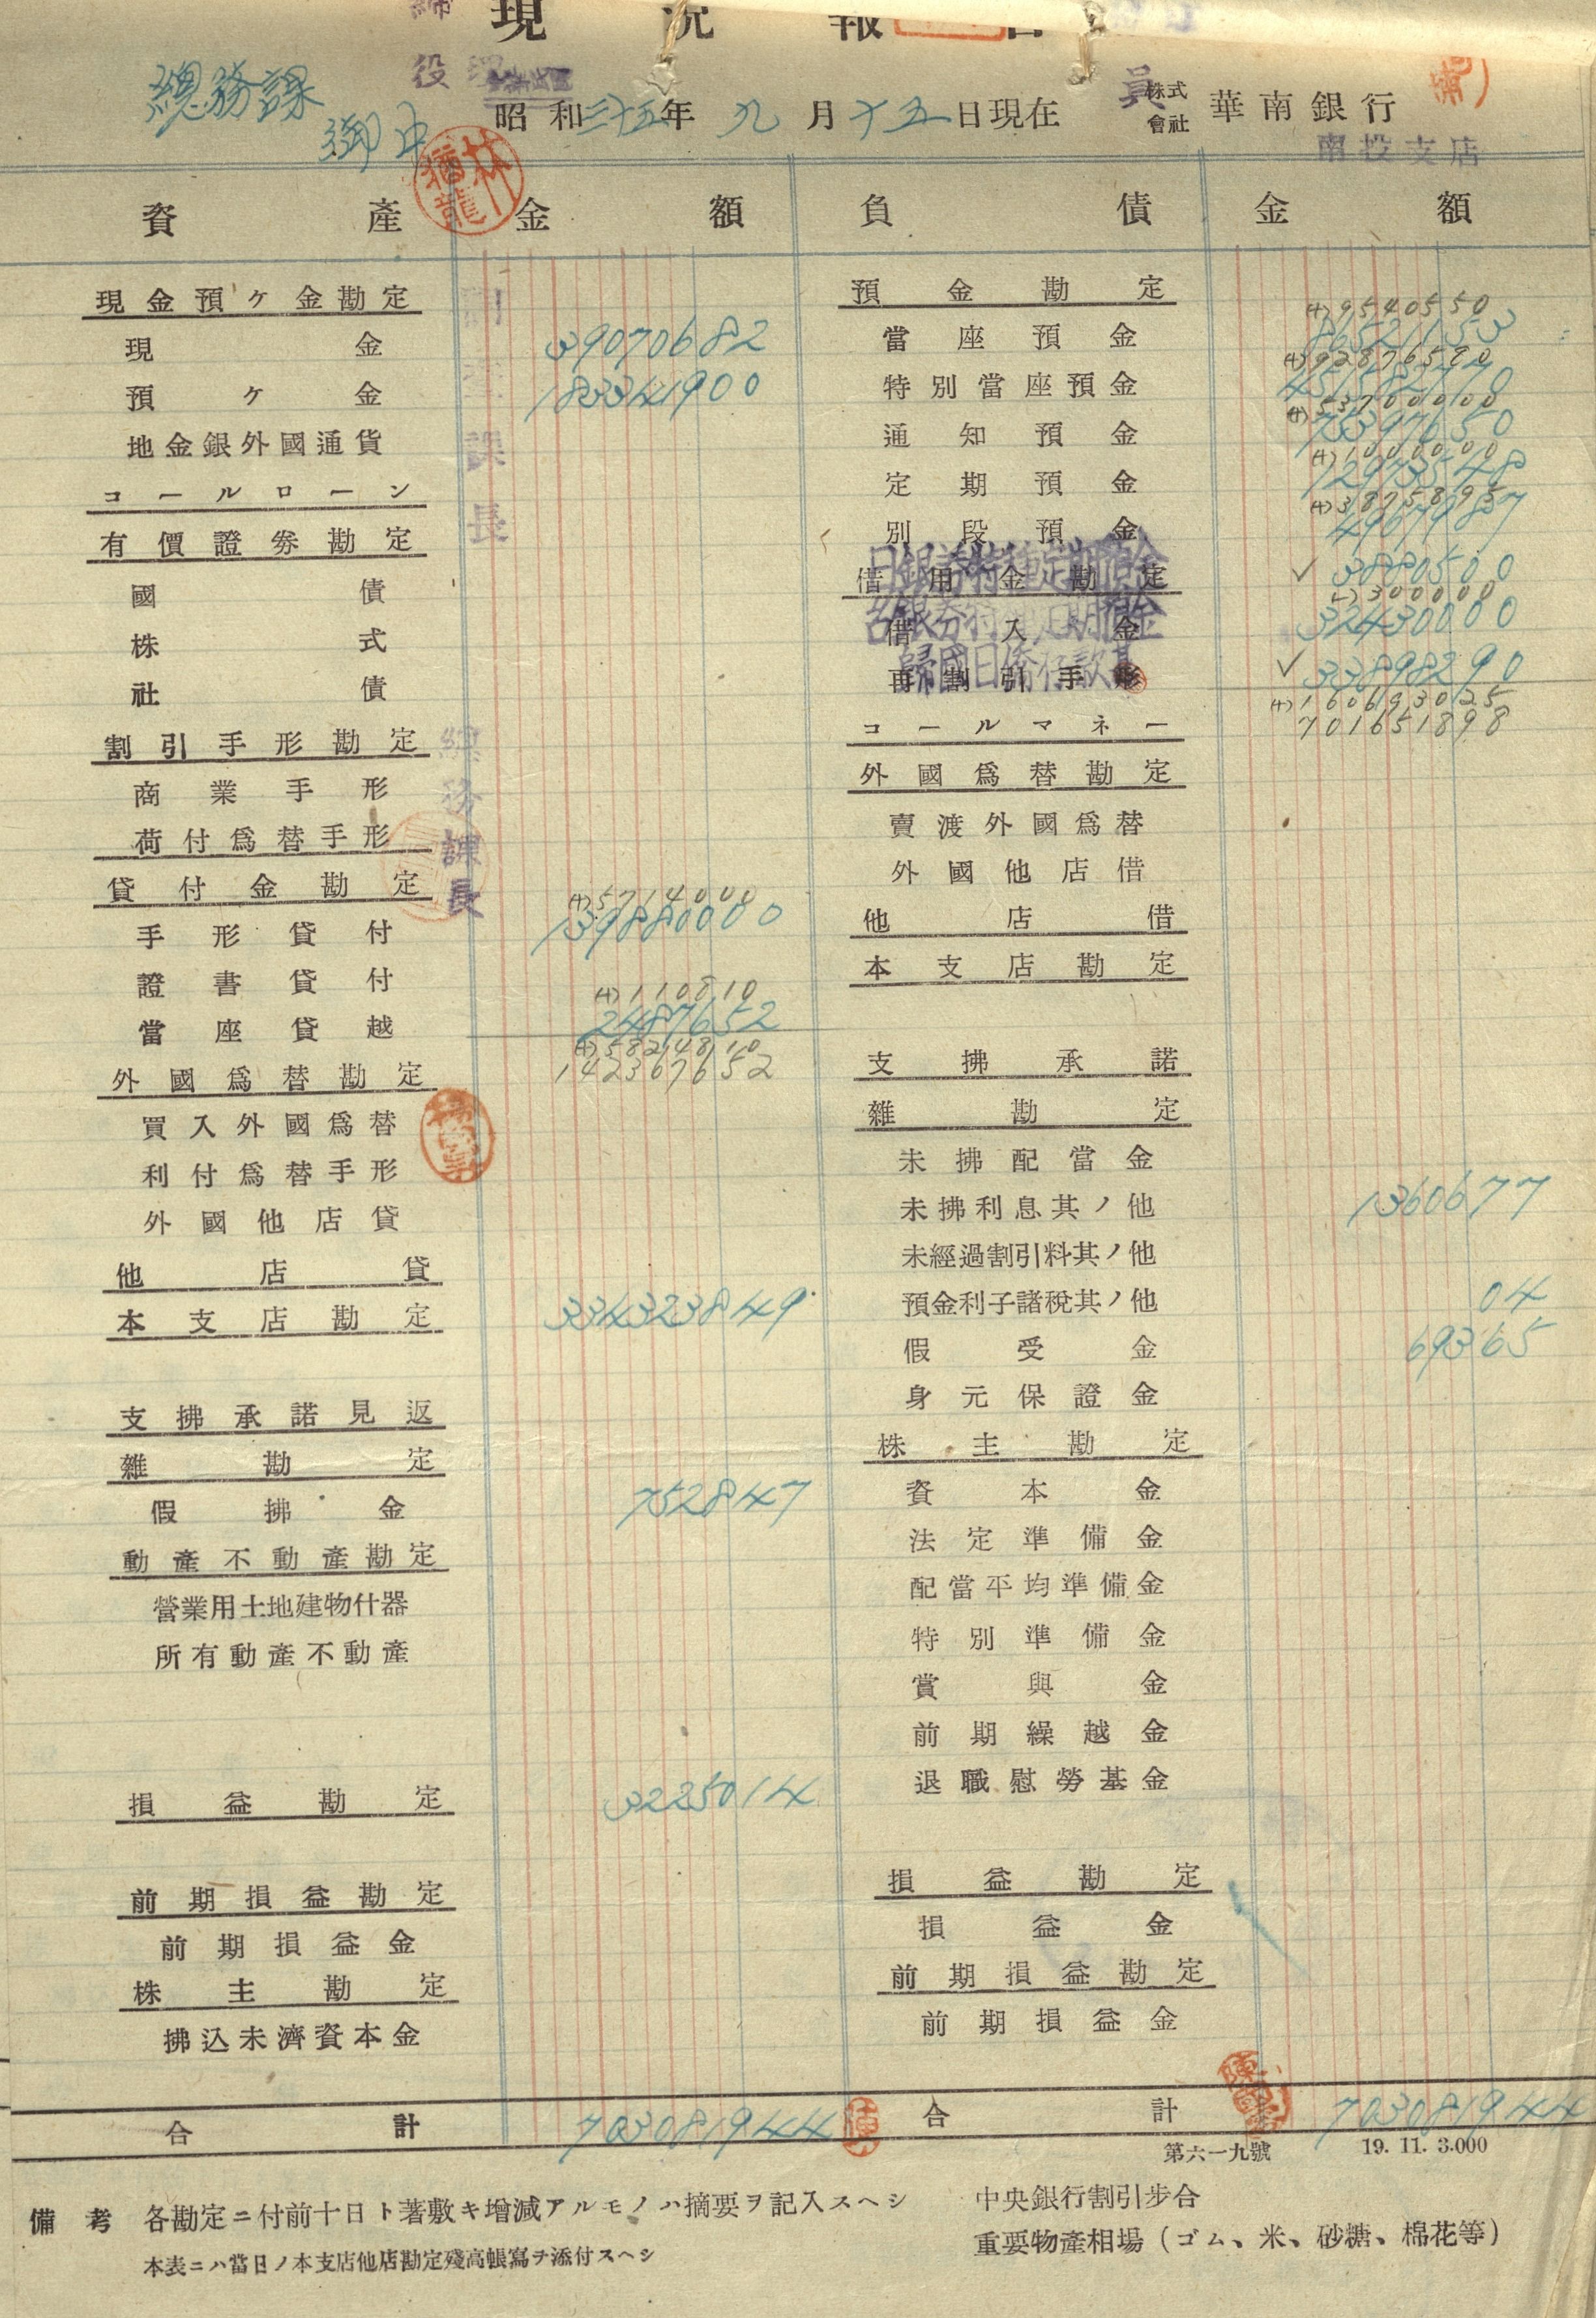 現況報告
總務課 御中
昭和三十五年九月十五日現在
株式會社 華南銀行
南投支店
資產 金額 負債 金額
現金預ケ金勘定
現金 39070682
預ケ金 183341900
地金銀外國通貨
コールローン
有價證券勘定
國債
株式
社債
割引手形勘定
商業手形
荷付爲替手形
貸付金勘定
(+)5714000
手形貸付 139880000
證書貸付
(+)110810
當座貸越 2487652
(+)5824810
142367652
外國爲替勘定
買入外國爲替
利付爲替手形
外國他店貸
他店貸
本支店勘定 334323849
支拂承諾見返
雜勘定
假拂金 752847
動產不動產勘定
營業用土地建物什器
所有動產不動產
損益勘定 3225014
前期損益勘定
前期損益金
株主勘定
拂込未濟資本金
合計 703081944
預金勘定
(+)9540550
當座預金 86521153
(+)92876590
特別當座預金 451582770
(+)53700000
通知預金 75397650
(+)1000000
定期預金 12973548
(+)3875885
別段預金 4967987
借用金勘定
日銀券特種定期預金 ✓ 3880500
(-)300000
借入金
台銀券特種定期預金 32430000
再割引手形
歸國日僑存款 ✓ 33898290
(+)160693025
701651898
コールマネー
外國爲替勘定
賣渡外國爲替
外國他店借
他店借
本支店勘定
支拂承諾
雜勘定
未拂配當金
未拂利息其ノ他 1360677
未經過割引料其ノ他
預金利子諸稅其ノ他 04
假受金 69365
身元保證金
株主勘定
資本金
法定準備金
配當平均準備金
特別準備金
賞與金
前期繰越金
退職慰勞基金
損益勘定
損益金
前期損益勘定
前期損益金
合計 703081944
第六一九號 19. 11. 3.000
備考 各勘定ニ付前十日ト著敷キ增減アルモノハ摘要ヲ記入スヘシ
本表ニハ當日ノ本支店他店勘定殘高帳寫チ添付スヘシ
中央銀行割引步合
重要物產相場（ゴム、米、砂糖、棉花等）
副
課長
總務課長
林
猶龍